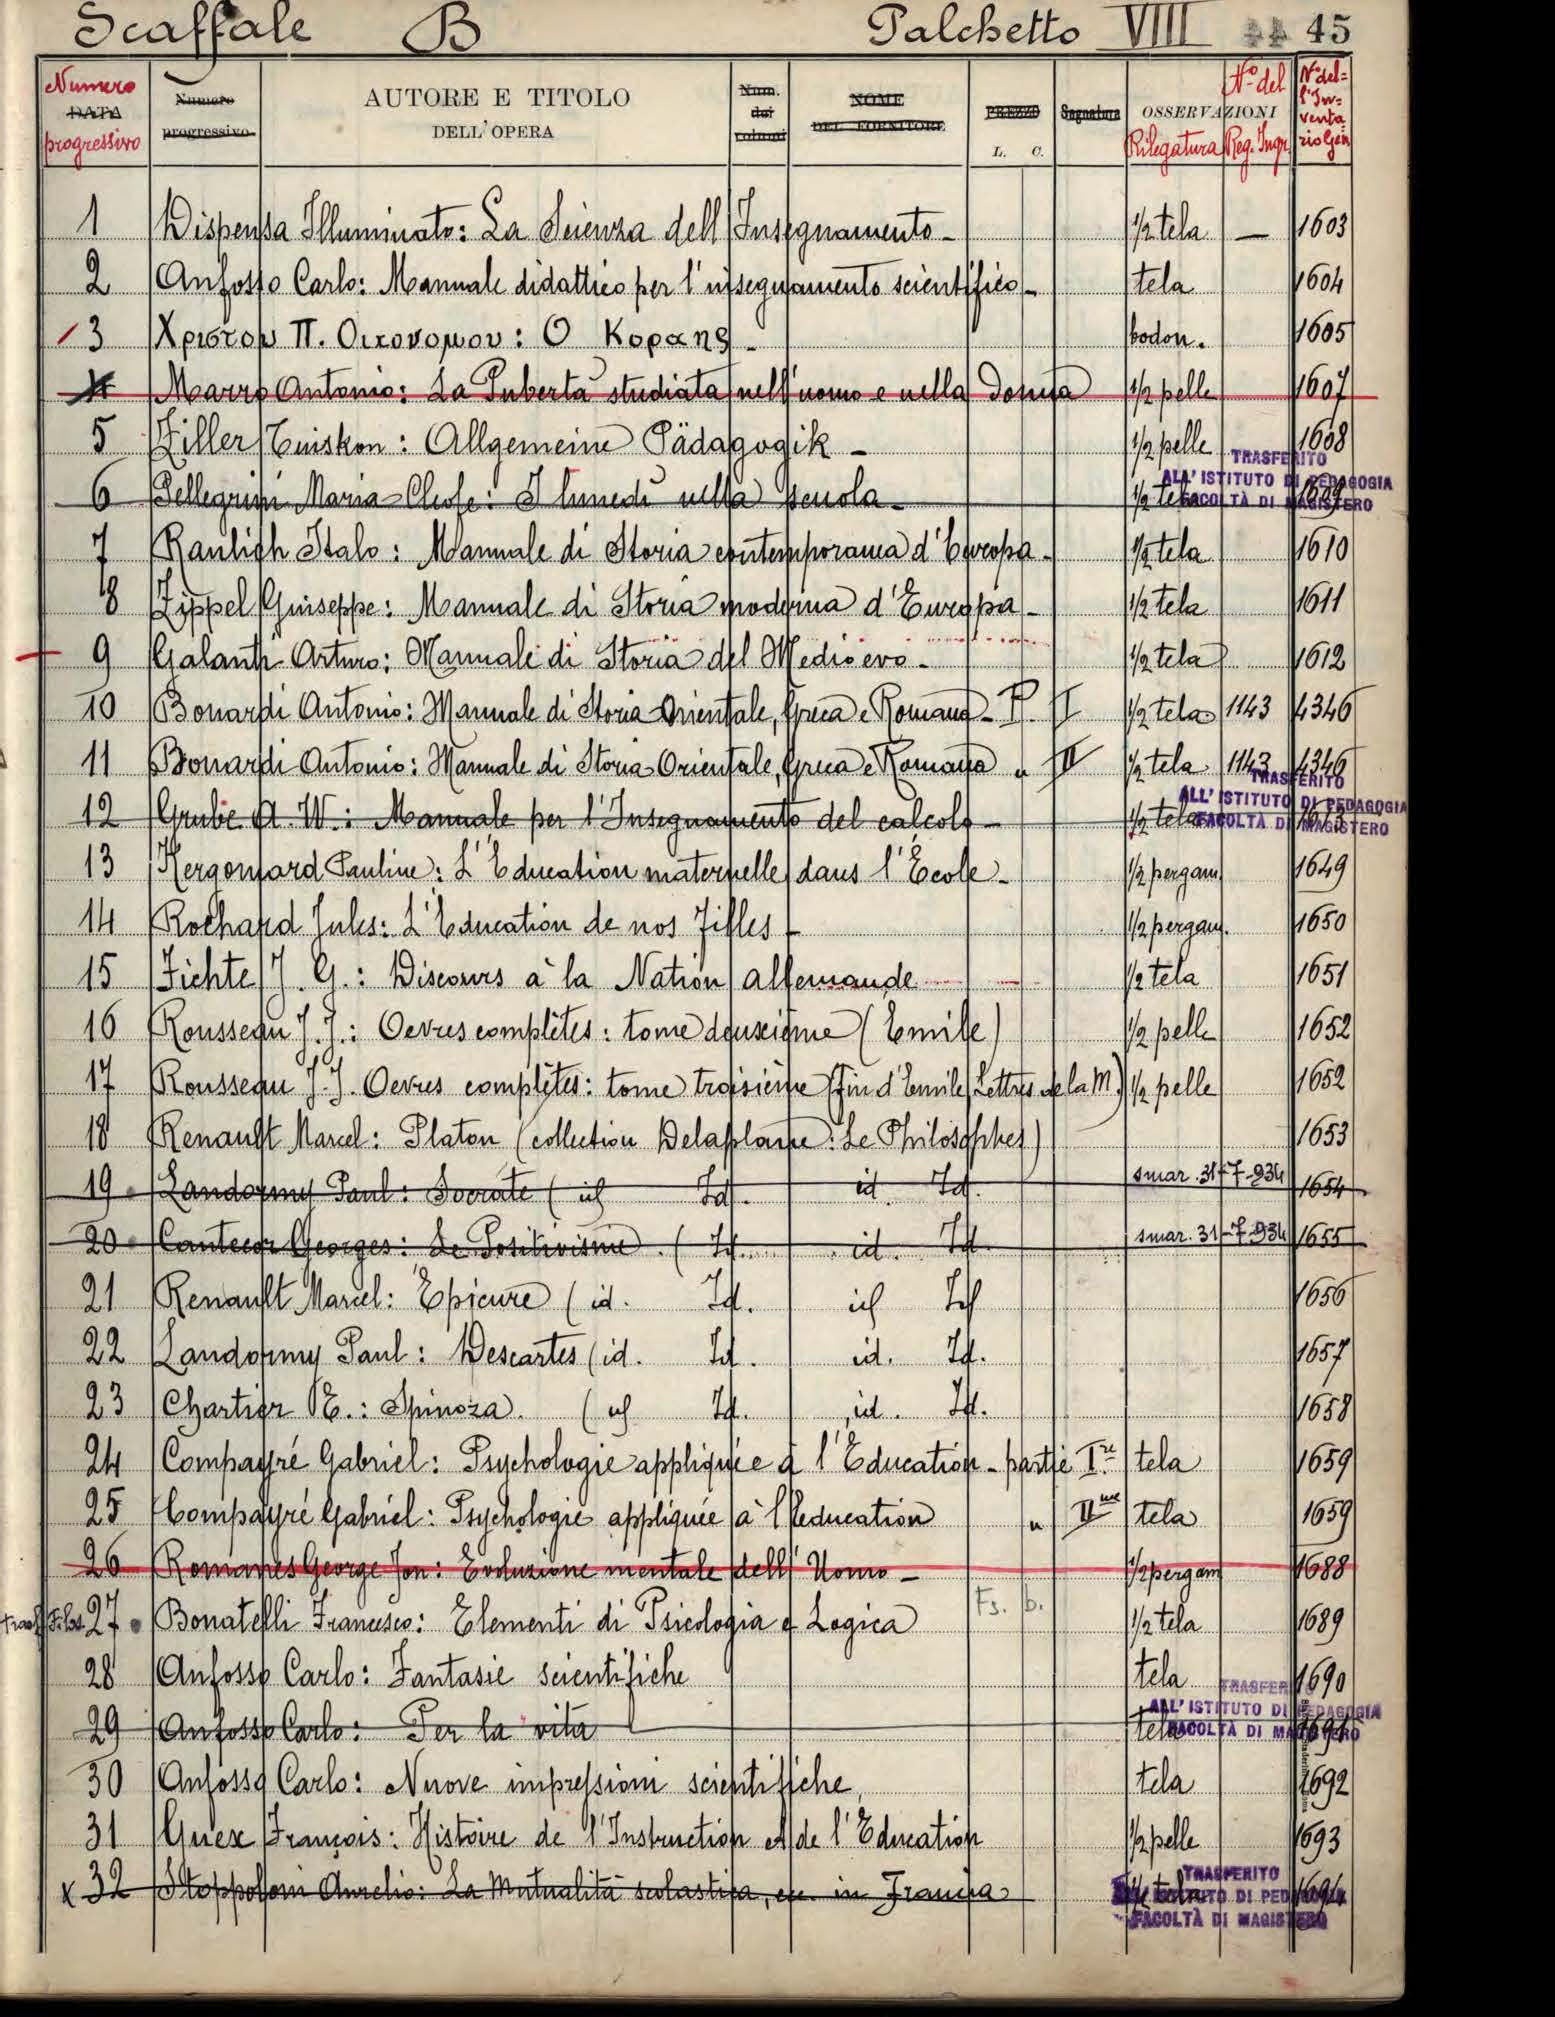 Scaffale B Palchetto VIII 44 45
Numero DATA progressivo
Numero progressivo.
AUTORE E TITOLO
DELL'OPERA
Num. dei volumi
NOME DEL FORNITORE
PREZZO
L. C.
Segnatura
OSSERVAZIONI
Rilegatura
N.o del Reg. Ingr.
N.o del= l'In= venta rio Gen
1 Dispensa Illuminato: La Scienza dell'Insegnamento - 1/2 tela — 1603
2 Anfosso Carlo: Manuale didattico per l'insegnamento scientifico - tela 1604
3 Χριστου Π. Οικονομου: Ο Κοραης - bodon. 1605
4 Marro Antonio: La Pubertà studiata nell'uomo e nella donna 1/2 pelle 1607
5 Ziller Tuiskon: Allgemeine Pädagogik - 1/2 pelle 1608
TRASFERITO
ALL'ISTITUTO DI PEDAGOGIA
FACOLTÀ DI MAGISTERO
6 Pellegrini Maria-Cleofe: I lunedì nella scuola - 1/2 tela 1609
7 Raulich Italo: Manuale di Storia contemporanea d'Europa - 1/2 tela 1610
8 Zippel Giuseppe: Manuale di Storia moderna d'Europa - 1/2 tela 1611
9 Galanti Arturo: Manuale di Storia del Medio evo - 1/2 tela 1612
10 Bonardi Antonio: Manuale di Storia Orientale, Greca e Romana - P. I 1/2 tela 1143 4346
11 Bonardi Antonio: Manuale di Storia Orientale, Greca e Romana " II 1/2 tela 1143 4346
TRASFERITO
ALL'ISTITUTO DI PEDAGOGIA
FACOLTÀ DI MAGISTERO
12 Grube A. W.: Manuale per l'Insegnamento del calcolo - 1/2 tela 1613
13 Kergomard Pauline: L'Education maternelle dans l'École - 1/2 pergam. 1649
14 Rochard Jules: L'Education de nos Filles - 1/2 pergam. 1650
15 Fichte J. G.: Discours à la Nation allemande 1/2 tela 1651
16 Rousseau J. J.: Oevres complètes: tome deuxième (Emile) 1/2 pelle 1652
17 Rousseau J. J. Oevres complètes: tome troisième (fin d'Emile, Lettres de la M.) 1/2 pelle 1652
18 Renault Marcel: Platon (collection Delaplane: Le Philosophes) 1653
19 Landormy Paul: Socrate (id Id. id. Id. smar. 31-7-934 1654
20 Cantecor Georges: Le Positivisme. (Id. id. Id. smar. 31-7-934 1655
21 Renault Marcel: Epicure (id. Id. id Id 1656
22 Landormy Paul: Descartes (id. Id. id. Id. 1657
23 Chartier E.: Spinoza. (id Id. id. Id. 1658
24 Compayré Gabriel: Psychologie appliquée à l'Education - partie I.re tela 1659
25 Compayré Gabriel: Psychologie appliquée à l'Education " II me tela 1659
26 Romanes George Jon: Evoluzione mentale dell'Uomo - 1/2 pergam 1688
27 Bonatelli Francesco: Elementi di Psicologia e Logica Fs. b. 1/2 tela 1689
28 Anfosso Carlo: Fantasie scientifiche tela 1690
TRASFERITO
ALL'ISTITUTO DI PEDAGOGIA
FACOLTÀ DI MAGISTERO
29 Anfosso Carlo: Per la vita tela 1691
30 Anfosso Carlo: Nuove impressioni scientifiche, tela 1692
31 Guex François: Histoire de l'Instruction et de l'Education 1/2 pelle 1693
TRASFERITO
ALL'ISTITUTO DI PEDAGOGIA
FACOLTÀ DI MAGISTERO
x 32 Stoppoloni Aurelio: La Mutualità scolastica, ecc. in Francia 1/2 tela 1694